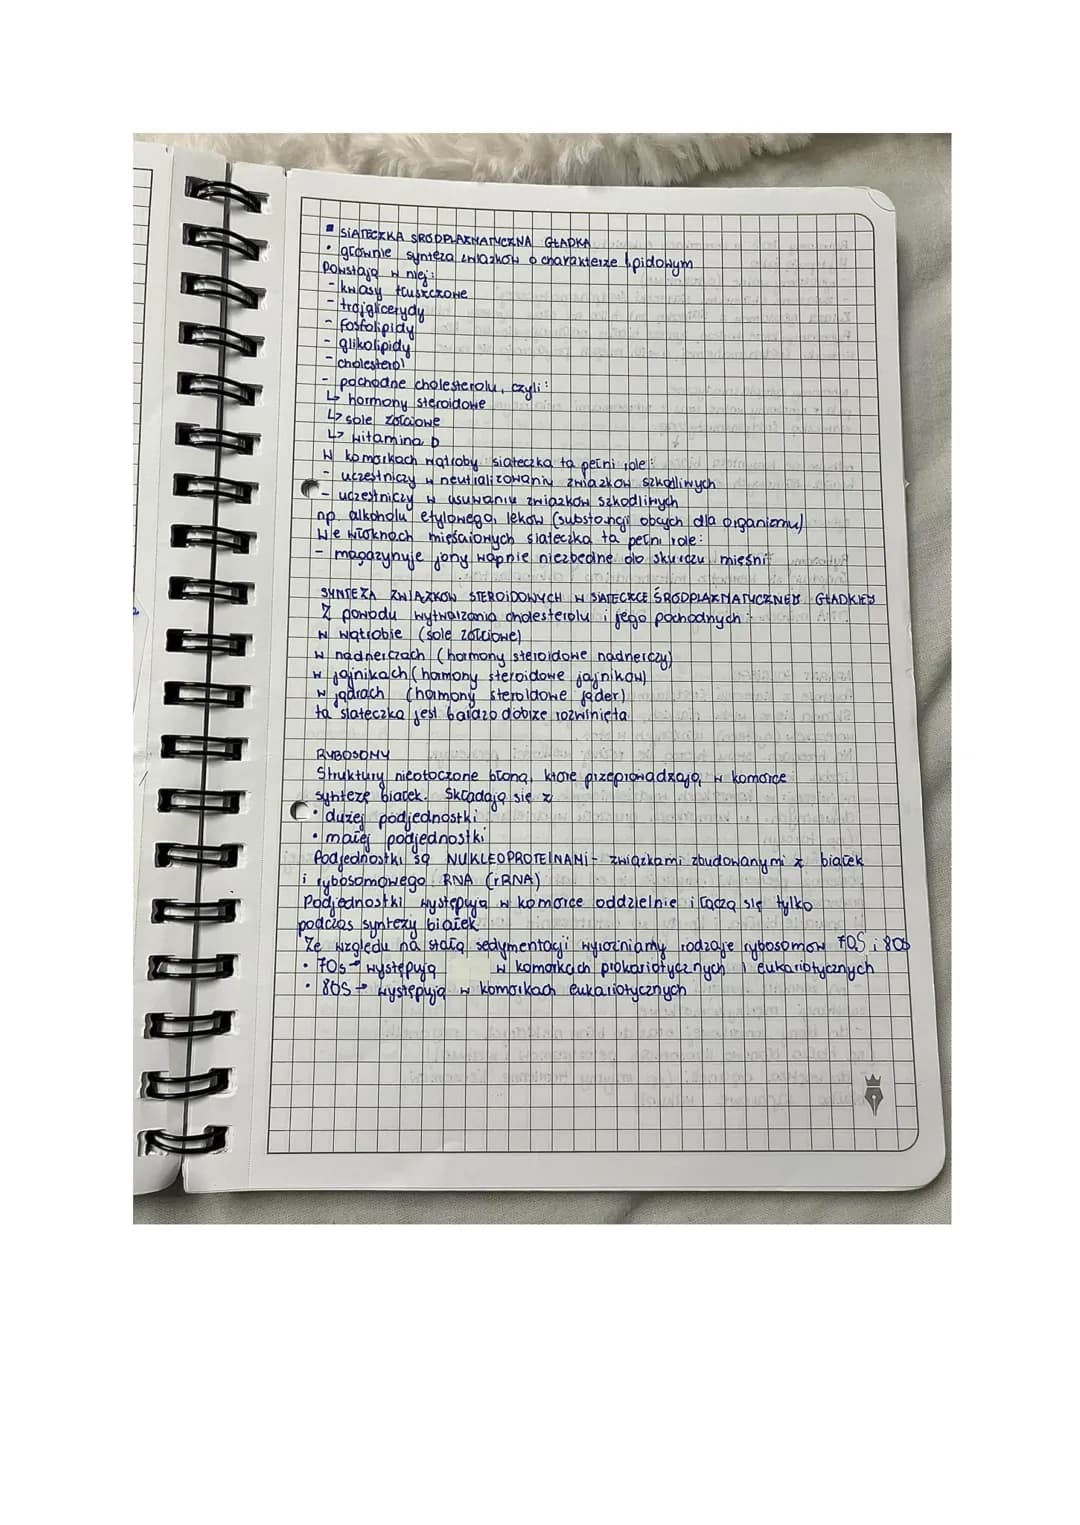 ▪ SIATECZKA ŚRÓDPLAZMATYCZNA GŁADKA
• głównie synteza związków o charakterze lipidowym
Powstają w niej:
- kwasy tłuszczowe
- trójglicerydy
- fosfolipidy
- glikolipidy
- cholesterol
- pochodne cholesterolu, czyli:
↳ hormony steroidowe
↳ sole żółciowe
↳ witamina D
W komórkach wątroby siateczka ta pełni role:
- uczestniczy w neutralizowaniu związków szkodliwych
- uczestniczy w usuwaniu związków szkodliwych
np. alkoholu etylowego, leków (substancji obcych dla organizmu)
We włóknach mięśniowych siateczka ta pełni role:
- magazynuje jony wapnie niezbędne do skurczu mięśni
SYNTEZA ZWIĄZKÓW STEROIDOWYCH W SIATECZCE ŚRÓDPLAZMATYCZNEJ GŁADKIEJ
Z powodu wytwarzania cholesterolu i jego pochodnych:
w wątrobie (sole żółciowe)
w nadnerczach (hormony steroidowe nadnerczy)
w jajnikach (hormony steroidowe jajników)
w jądrach (hormony steroidowe jąder)
ta siateczka jest bardzo dobrze rozwinięta
RYBOSOMY
Struktury nieotoczone błoną, które przeprowadzają w komórce
syntezę białek. Składają się z
• dużej podjednostki
• małej podjednostki
Podjednostki są NUKLEOPROTEINAMI - związkami zbudowanymi z białek
i rybosomowego RNA (rRNA)
Podjednostki występują w komórce oddzielnie i łączą się tylko
podczas syntezy białek.
Ze względu na stałą sedymentacji wyróżniamy rodzaje rybosomów 70S i 80S
• 70S → występują w komórkach prokariotycznych i eukariotycznych
• 80S → występują w komórkach eukariotycznych